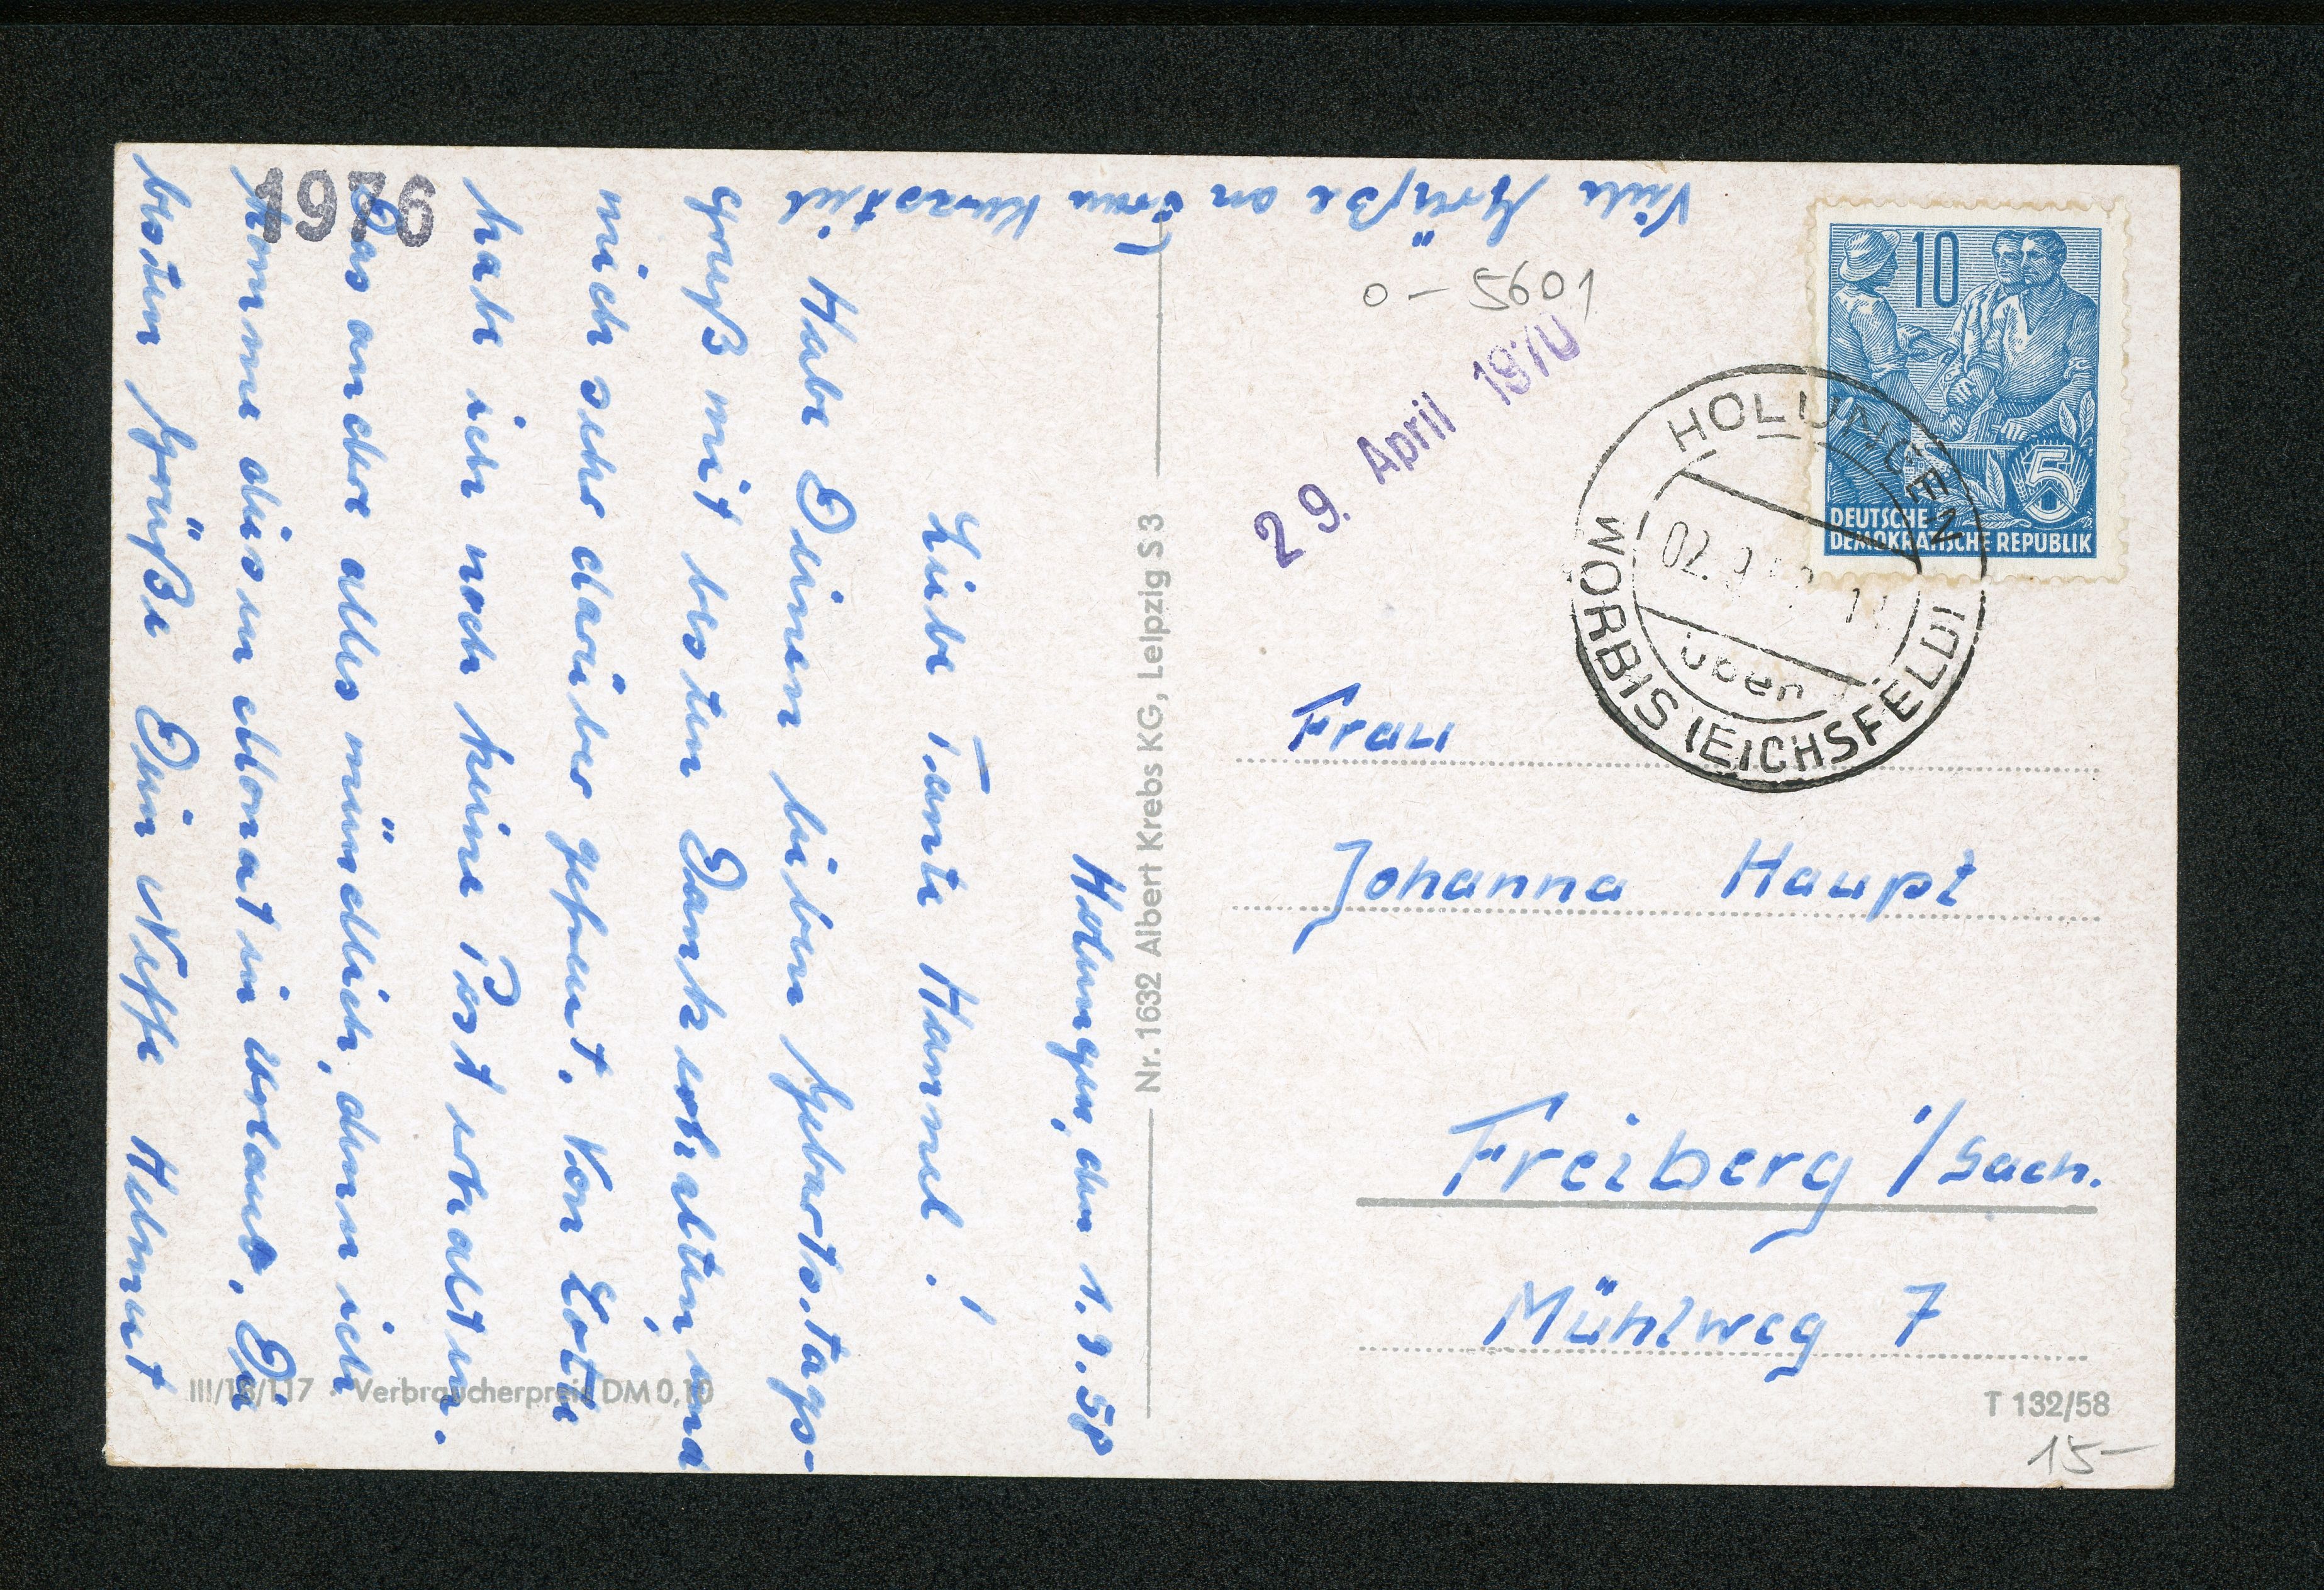 Holungen, den 1.9.58
Liebe Tante Hannel!
Habe Deinen lieben Geburtstags-
gruß mit besten Dank erhalten, und
mich sehr darüber gefreut. Von Lotte
habe ich noch keine Post erhalten.
Das andere alles mündlich, denn ich
komme diesen Monat in Urlaub. Die
besten Grüße Dein Neffe Helmut
Viele Grüße an Frau
1976
Nr. 1632 Albert Krebs KG, Leipzig S 3
III/18/117 · Verbraucherpreis DM 0,10
0 - 5601
29. April 1970
10
5
DEUTSCHE
DEMOKRATISCHE REPUBLIK
HOLUNGEN
02.9.58
über
WORBIS (EICHSFELD)
Frau
Johanna Haupt
Freiberg i/Sach.
Mühlweg 7
T 132/58
15-